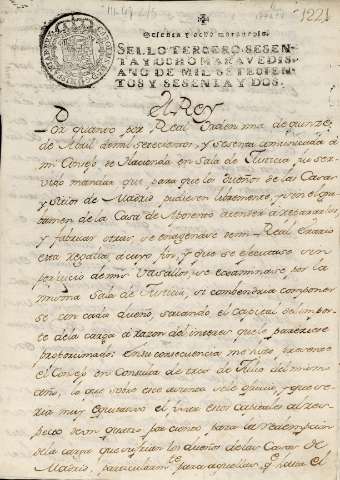 1221
Sesenta y ocho maravedis.
SELLO TERCERO, SESEN-
TA Y OCHO MARAVEDIS,
AÑO DE MIL SETECIEN-
TOS Y SESENTA Y DOS.
El Rey
Por quanto por Real orden mia de quinze
de Abril de mil setecientos y sesenta comunicada a
mi Consejo de Hacienda en Sala de Justicia fui ser-
vido mandar que para que los Dueños de las Casas
y Sitios de Madrid pudiesen libremente, y sin el gra-
bamen de la Casa de Aposento atender a repararlas
y fabricar otras, se enagenase de mi Real Erario
esta regalia, a cuyo fin, y que se executase sin
perjuicio de mis Vasallos, se examinase por la
misma Sala de Justicia, si combendria componer-
se con cada dueño, sacando el capital del impor-
te dela carga a razon del interes que le pareciese
proporcionado. En su consecuencia me hizo presente
el Consejo en Consulta de tres de Julio del mismo
año, lo que sobre este asunto se le ofrecia, y que se-
ria muy equitativo el que estos capitales al res-
pecto de un quatro por ciento para la redempcion
de la carga que sufrian los dueños de las Casas de
Madrid, particularmte para aquellas, q